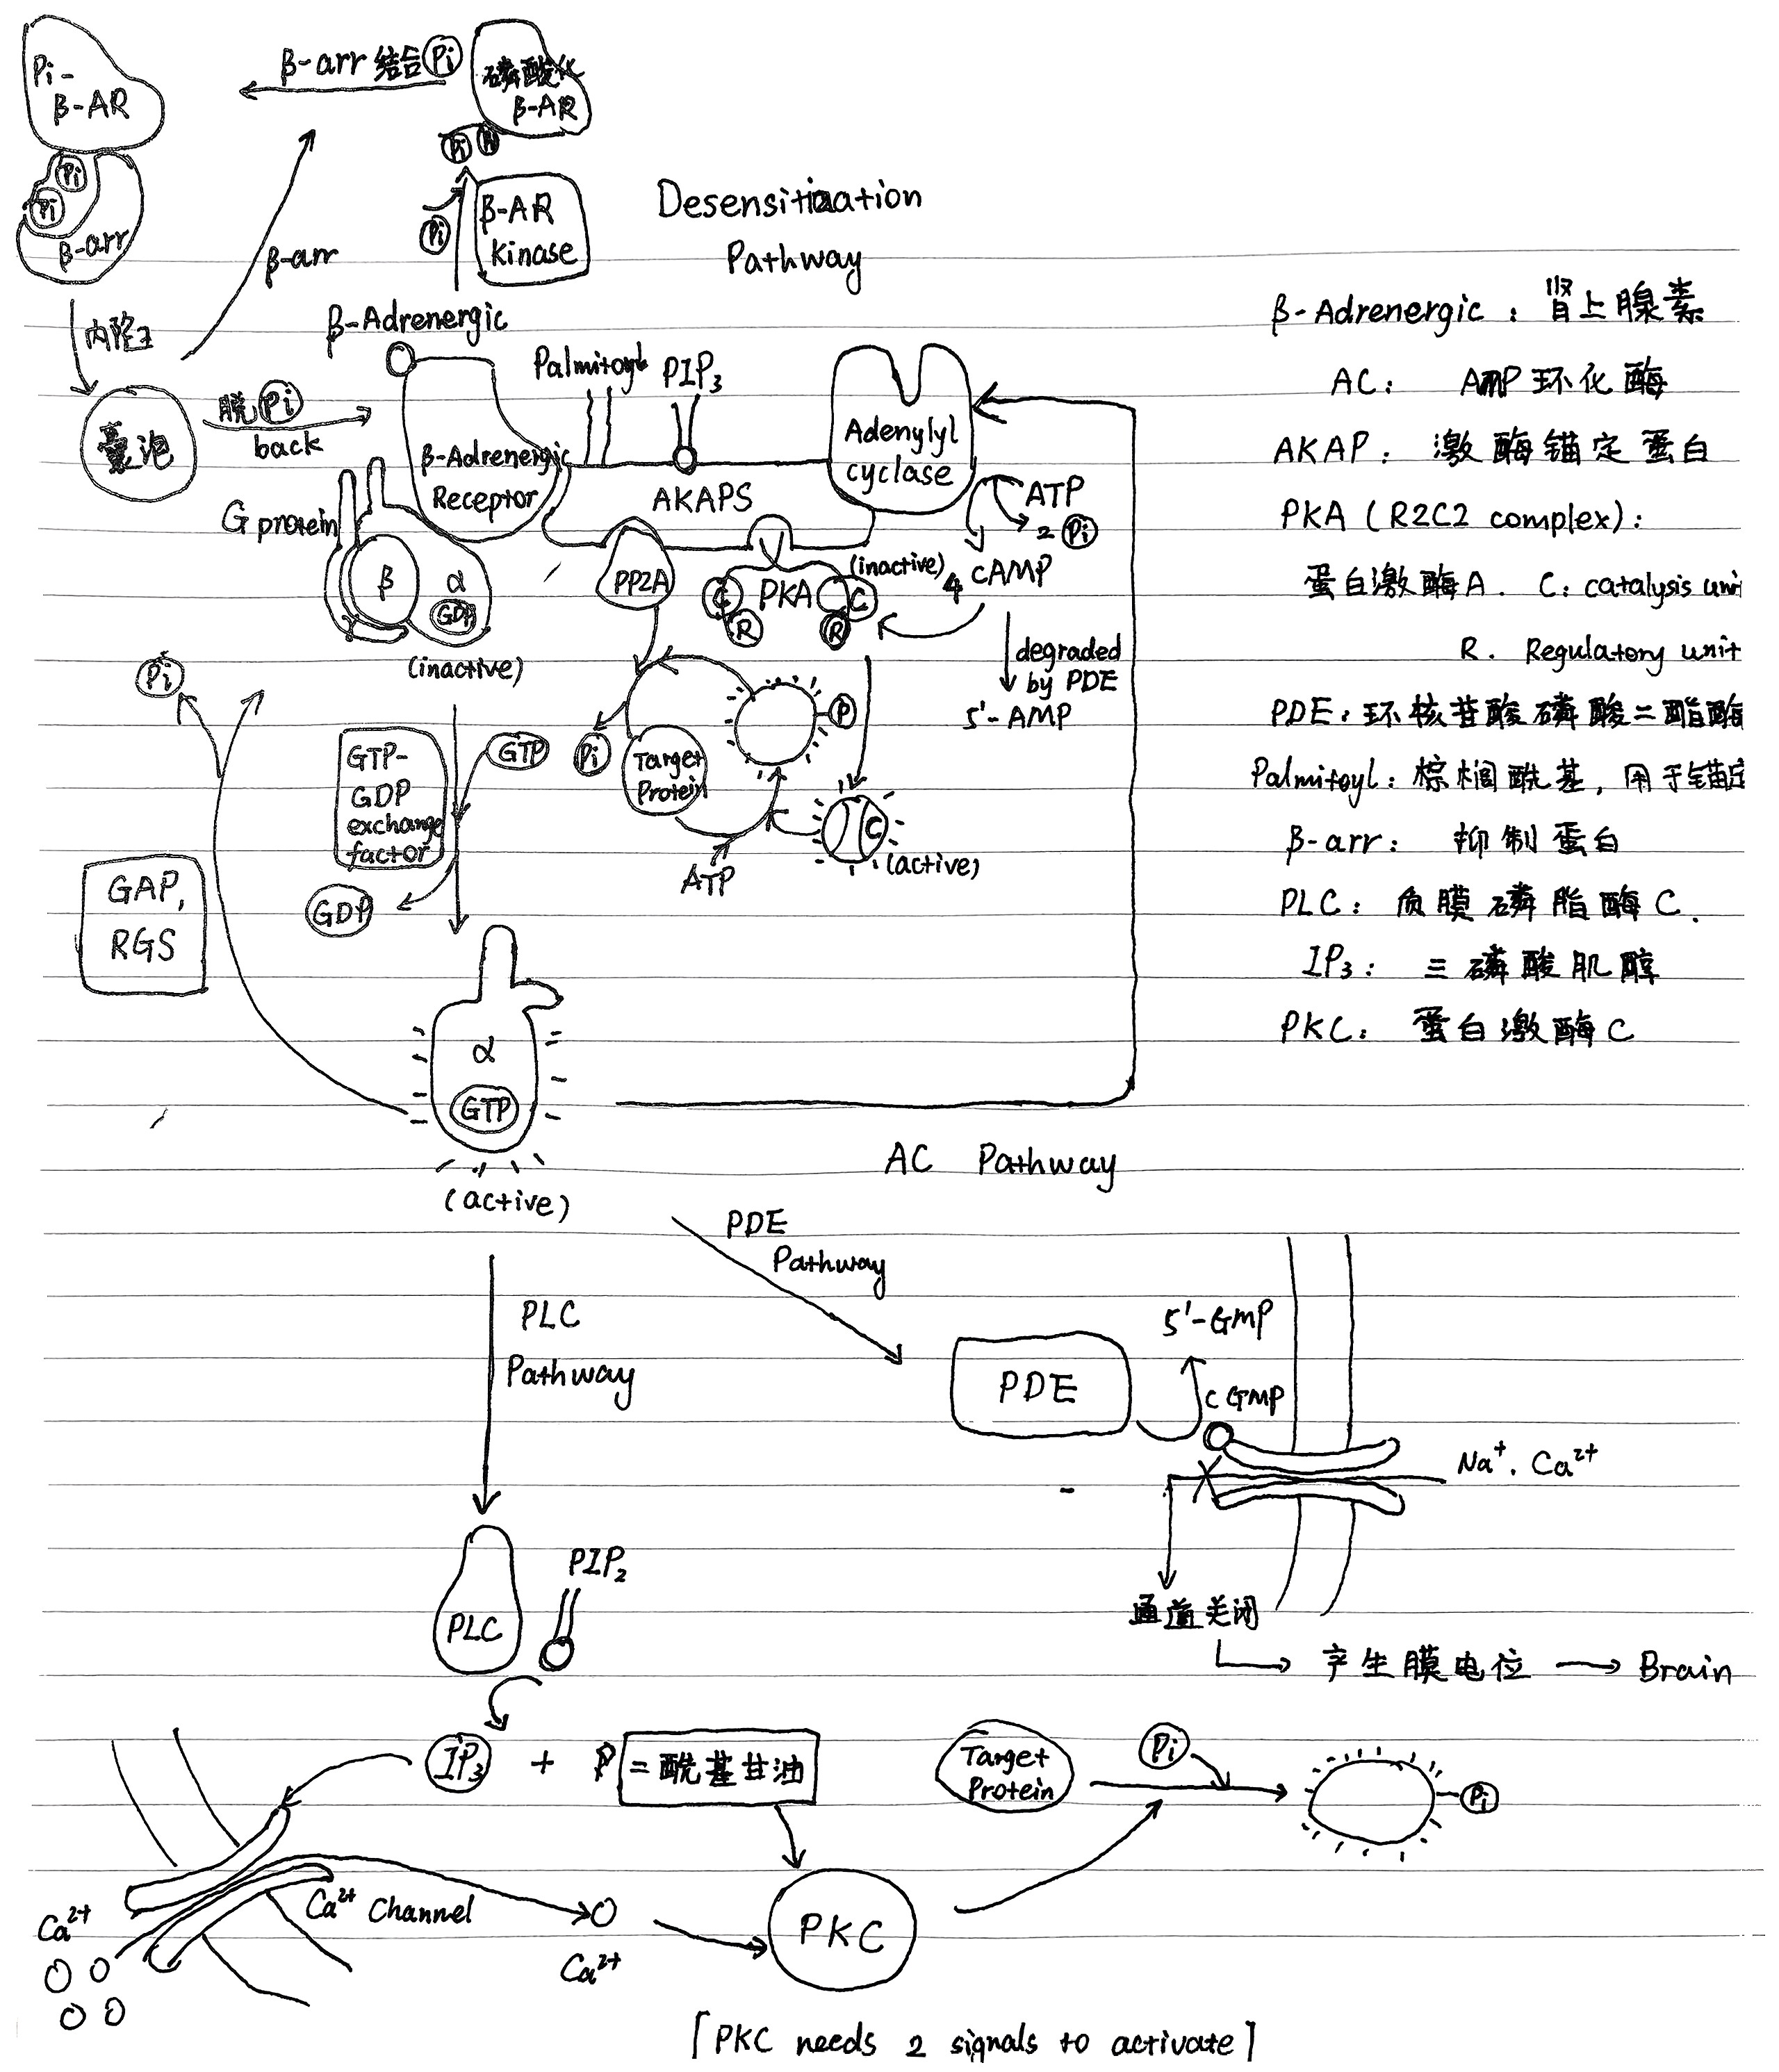 Pi-
β-AR
Pi
Pi
β-arr
β-arr 结合 Pi
磷酸化
β-AR
Pi
Pi
β-AR
Kinase
β-arr
Desensitization
Pathway
内陷
囊泡
脱 Pi
back
β-Adrenergic
β-Adrenergic
Receptor
Palmitoyl
PIP3
Adenylyl
cyclase
AKAPS
ATP
2 Pi
G protein
β
α
GDP
γ
(inactive)
PP2A
C
PKA
C
R
R
(inactive)
4 cAMP
degraded
by PDE
5'-AMP
Pi
P
Pi
Target
Protein
ATP
C
(active)
GTP-
GDP
exchange
factor
GTP
GDP
GAP,
RGS
α
GTP
(active)
AC Pathway
β-Adrenergic: 肾上腺素
AC: AMP 环化酶
AKAP: 激酶锚定蛋白
PKA (R2C2 complex):
蛋白激酶A. C: catalysis uni
R. Regulatory unit
PDE: 环核苷酸磷酸二酯酶
Palmitoyl: 棕榈酰基, 用于锚定
β-arr: 抑制蛋白
PLC: 质膜磷脂酶C.
IP3: 三磷酸肌醇
PKC: 蛋白激酶C
PDE
Pathway
PLC
Pathway
PDE
5'-GMP
cGMP
Na+. Ca2+
通道关闭
产生膜电位 → Brain
PLC
PIP2
IP3 + 二酰基甘油
Target
Protein
Pi
Pi
Ca2+
Ca2+ Channel
Ca2+
PKC
「PKC needs 2 signals to activate」